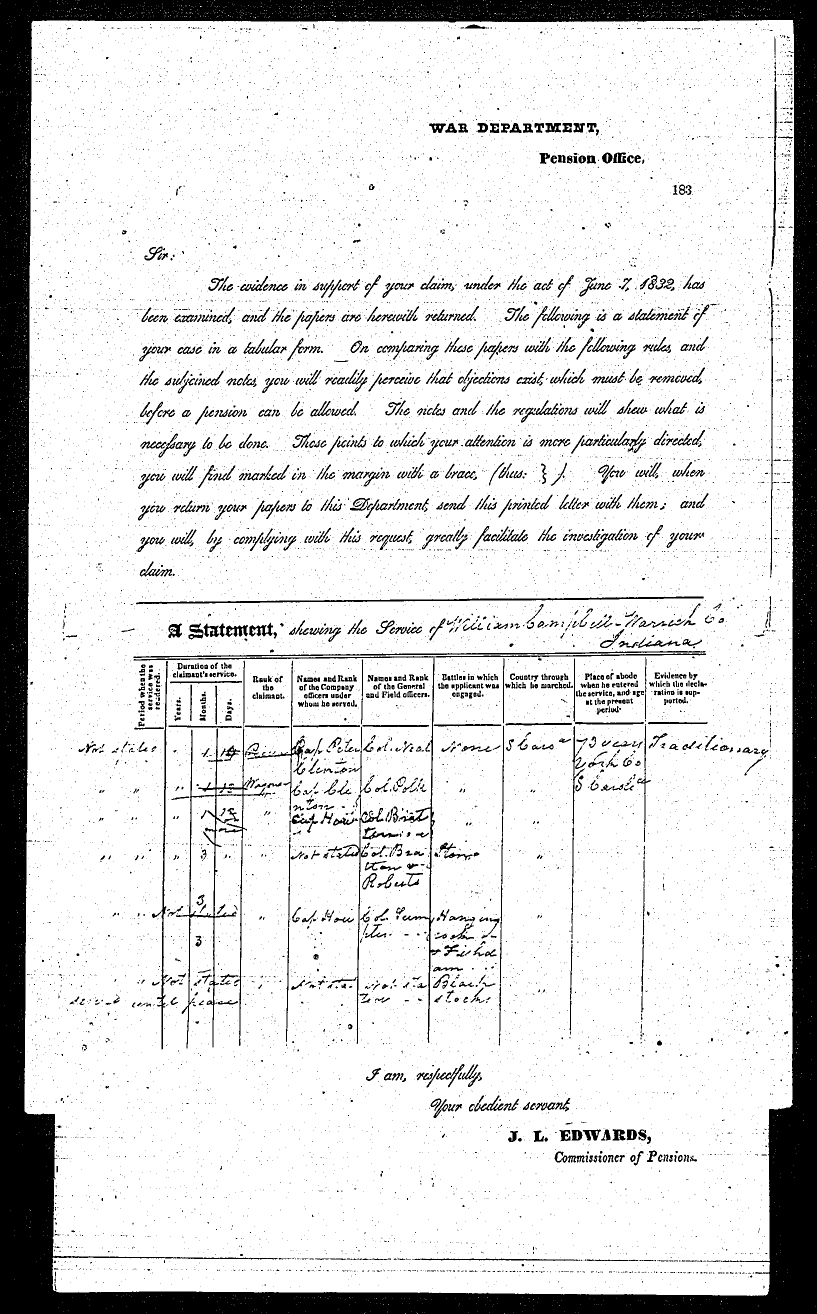 WAR DEPARTMENT,
Pension Office,
183
Sir:
The evidence in support of your claim, under the act of June 7, 1832, has
been examined, and the papers are herewith returned. The following is a statement of
your case in a tabular form. On comparing these papers with the following rules, and
the subjoined notes, you will readily perceive that objections exist, which must be removed,
before a pension can be allowed. The notes and the regulations will shew what is
necessary to be done. Those points to which your attention is more particularly directed,
you will find marked in the margin with a brace, (thus: } ). You will, when
you return your papers to this Department, send this printed letter with them; and
you will, by complying with this request, greatly facilitate the investigation of your
claim.
A Statement, shewing the Service of William Campbell - Warrick Co
Indiana
Period when the service was rendered.
Duration of the claimant's service.
Years.
Months.
Days.
Rank of the claimant.
Names and Rank of the Company officers under whom he served.
Names and Rank of the General and Field officers.
Battles in which the applicant was engaged.
Country through which he marched.
Place of abode when he entered the service, and age at the present period.
Evidence by which the declaration is supported.
Not stated " 1 Cap Peter Col. Neal None S Car a 73 years Traditionary
Clinton York Co
" " " 1 Wagoner Cap Cli Col. Polk " " S Carolina
nton
" Cap How Col. Brat " "
" " " 3 " " Not stated Col. Bra Stono "
tton &
Roberts
3
" " Not stated " Cap How Col. Sum Hanging "
pter rock &
3 & Fishd
am
" Not stated " Not sta Not sta Black "
served until peace ted stocks
I am, respectfully,
Your obedient servant,
J. L. EDWARDS,
Commissioner of Pensions.